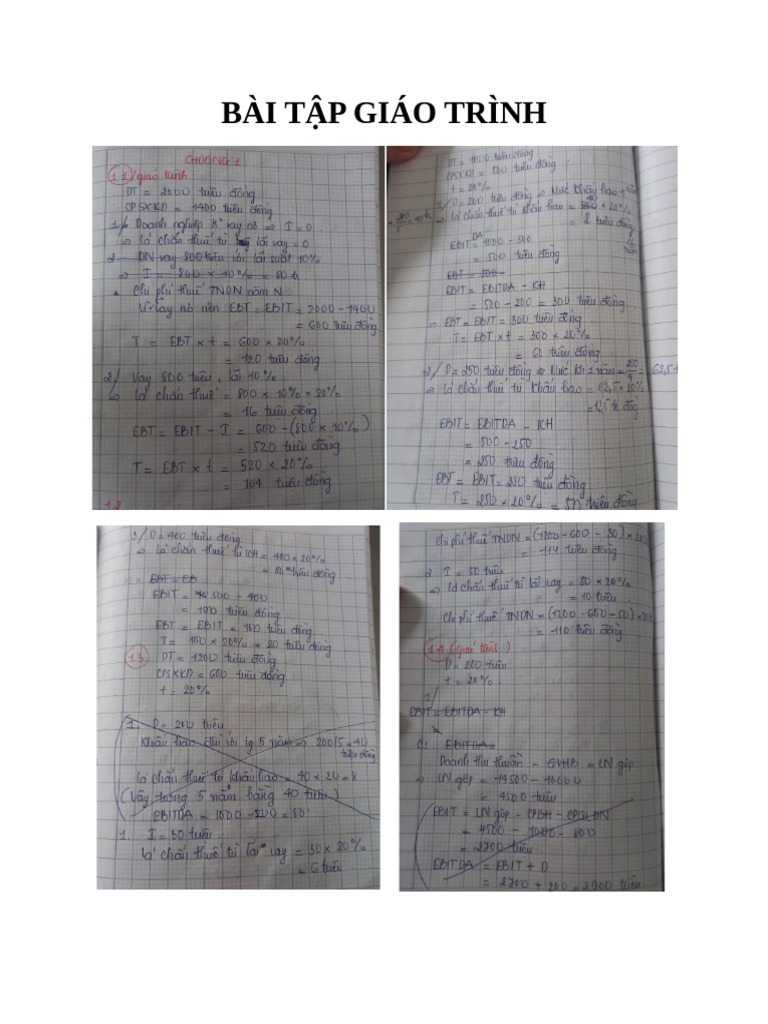 BÀI TẬP GIÁO TRÌNH
CHƯƠNG 1
1.1/giáo trình
DT = 2000 triệu đồng
CPSXKD = 1400 triệu đồng
1/ Doanh nghiệp K° vay nợ => I = 0
=> lá chắn thuế từ lãi vay = 0
2 DN vay 800 triệu với lãi suất 10%
=> I = 800 x 10% = 80
* Chi phí thuế TNDN năm N
Vì vay nợ nên EBT = EBIT = 2000 - 1400
= 600 triệu đồng
T = EBT x t = 600 x 20%
= 120 triệu đồng
2/ Vay 800 triệu, lãi 10%
=> lá chắn thuế = 800 x 10% x 20%
= 16 triệu đồng
EBT = EBIT - I = 600 - (800 x 10%)
= 520 triệu đồng
T = EBT x t = 520 x 20%
= 104 triệu đồng
1.2
DT = 1000 triệu đồng
CPSXKD = 500 triệu đồng
t = 20%
1/ D = 200 triệu đồng => Mức khấu hao 1 năm
=> lá chắn thuế từ khấu hao = x 20%
= 8 triệu đồng
EBITDA = 1000 - 500
= 500 triệu đồng
EBT = 500 -
EBIT = EBITDA - KH
= 500 - 200 = 300 triệu đồng
=> EBT = EBIT = 300 triệu đồng
T = EBT x t = 300 x 20%
= 60 triệu đồng
2/ D = 250 triệu đồng => Mức KH 1 năm = = 62,5
=> lá chắn thuế từ khấu hao = 62,5 x 20%
EBIT = EBITDA - KH
= 500 - 250
= 250 triệu đồng
EBT = EBIT = 250 triệu đồng
T = 250 x 20% = 50 triệu đồng
3/ D = 400 triệu đồng
=> lá chắn thuế từ KH = 400 x 20%
= 80 triệu đồng
EBT = EB
EBIT = 500 - 400
= 100 triệu đồng
EBT = EBIT = 100 triệu đồng
T = 100 x 20% = 20 triệu đồng
1.3 DT = 1200 triệu đồng
CPSXKD = 600 triệu đồng
t = 20%
1. D = 200 triệu
Khấu hao đều tg 5 năm => 200/5 = 40
triệu đồng
lá chắn thuế từ khấu hao = 40 x 20 = 8
(Vậy trong 5 năm bằng 40 triệu)
EBITDA = 1000 - 200 = 80
1. I = 30 triệu
lá chắn thuế từ lãi vay = 30 x 20%
= 6 triệu
Chi phí thuế TNDN = (1200 - 600 - 30) x 20%
= 114 triệu đồng
2 I = 50 triệu
=> lá chắn thuế từ lãi vay = 50 x 20%
= 10 triệu
Chi phí thuế TNDN = (1200 - 600 - 50) x
= 110 triệu đồng
1.4 (giáo trình)
D = 200 triệu
t = 20%
1/
EBIT = EBITDA - KH
EBITDA =
Doanh thu thuần - GVHB = LN gộp
=> LN gộp = 14500 - 10000
= 4500 triệu
EBIT = LN gộp - CPBH - CPQLDN
= 4500 - 1000 - 800
= 2700 triệu
EBITDA = EBIT + D
= 2700 + 200 = 2900 triệu